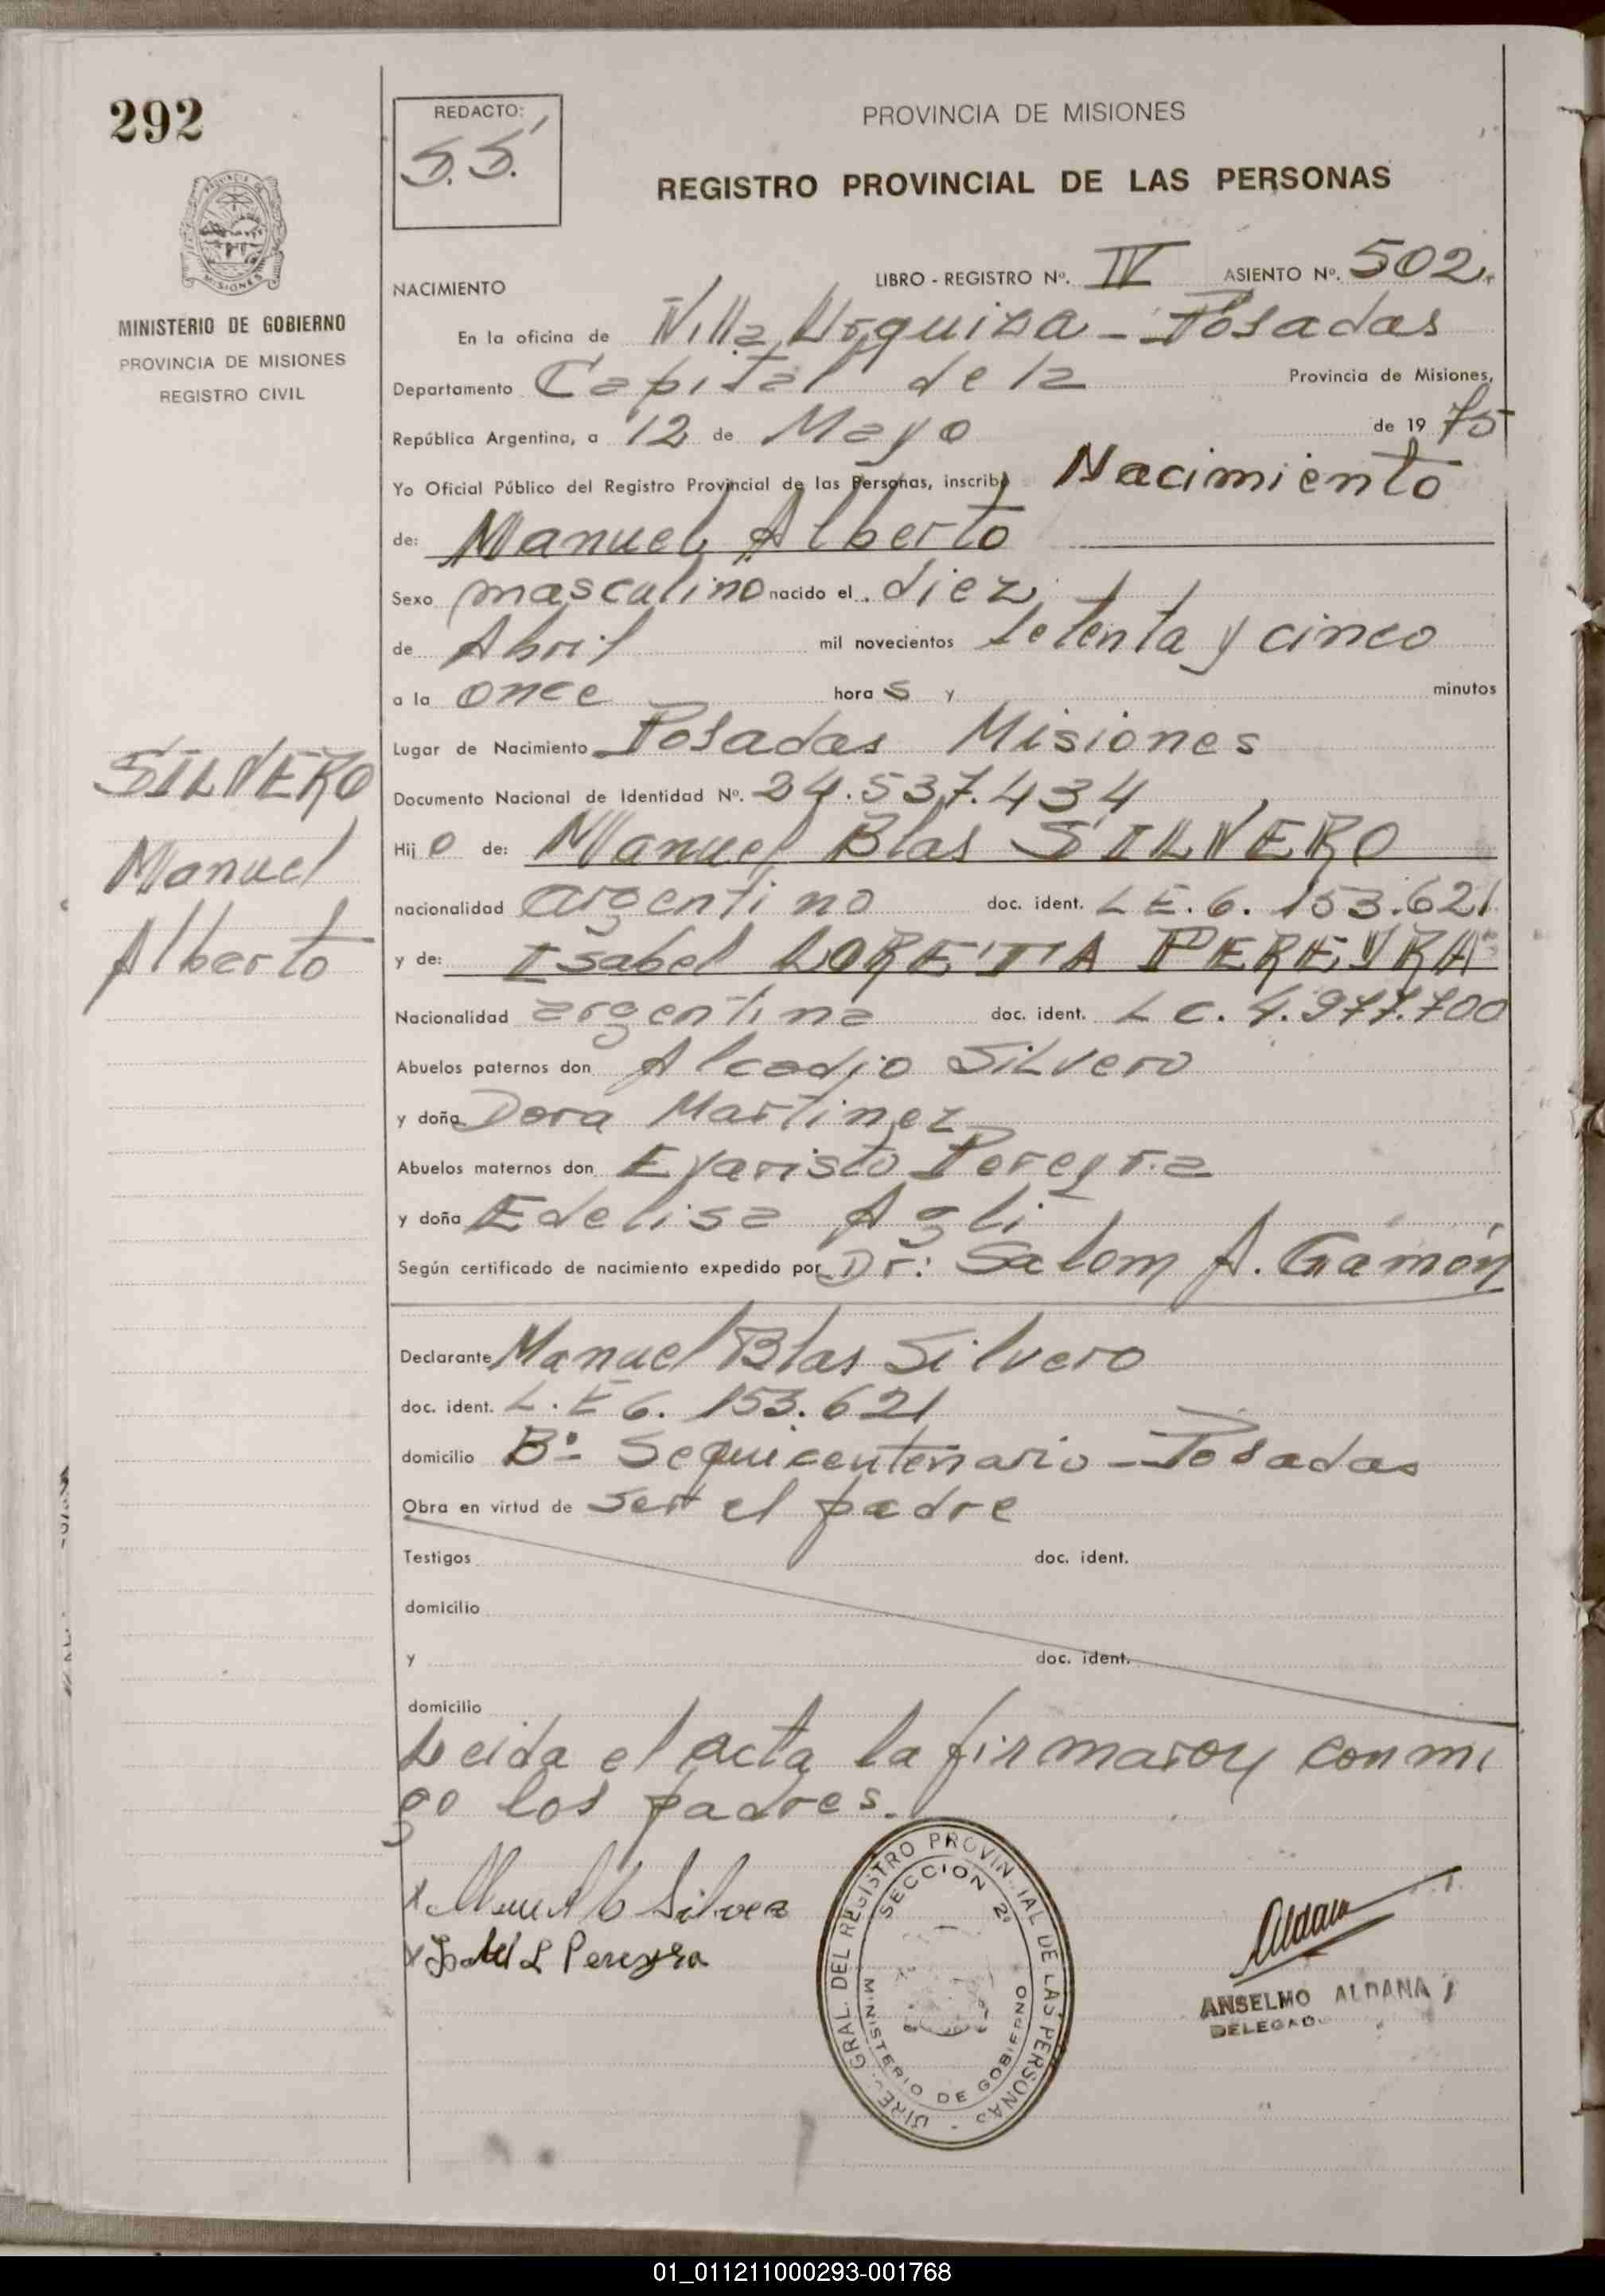 292
REDACTO:
S.S.
PROVINCIA DE MISIONES
REGISTRO PROVINCIAL DE LAS PERSONAS
MINISTERIO DE GOBIERNO
PROVINCIA DE MISIONES
REGISTRO CIVIL
NACIMIENTO LIBRO - REGISTRO Nº. IV ASIENTO Nº. 502
En la oficina de Villa Urquiza - Posadas
Departamento Capital de la Provincia de Misiones,
República Argentina, a 12 de Mayo de 19 75
Yo Oficial Público del Registro Provincial de las Personas, inscribo Nacimiento
de: Manuel Alberto
Sexo masculino nacido el diez
de Abril mil novecientos setenta y cinco
a la once hora s y minutos
Lugar de Nacimiento Posadas Misiones
SILVERO
Manuel
Alberto
Documento Nacional de Identidad Nº. 24.537.434
Hij o de: Manuel Blas SILVERO
nacionalidad argentino doc. ident. L E. 6. 153.621
y de: Isabel LORETA PEREYRA
Nacionalidad argentina doc. ident. L C. 4.977.700
Abuelos paternos don Alcadio Silvero
y doña Dora Martinez
Abuelos maternos don Evaristo Pereyra
y doña Edelisa Agli
Según certificado de nacimiento expedido por Dr: Salom A. Gamón
Declarante Manuel Blas Silvero
doc. ident. L. E 6. 153.621
domicilio Bº Sequicentenario - Posadas
Obra en virtud de ser el padre
Testigos doc. ident.
domicilio
y doc. ident.
domicilio
Leida el acta la firmaron conmi
go los padres.
x Silvero
x Isabel L Pereyra
DIREC. GRAL. DEL REGISTRO PROVINCIAL DE LAS PERSONAS
SECCION 2ª
MINISTERIO DE GOBIERNO
Aldana
ANSELMO ALDANA
DELEGADO
01_011211000293-001768